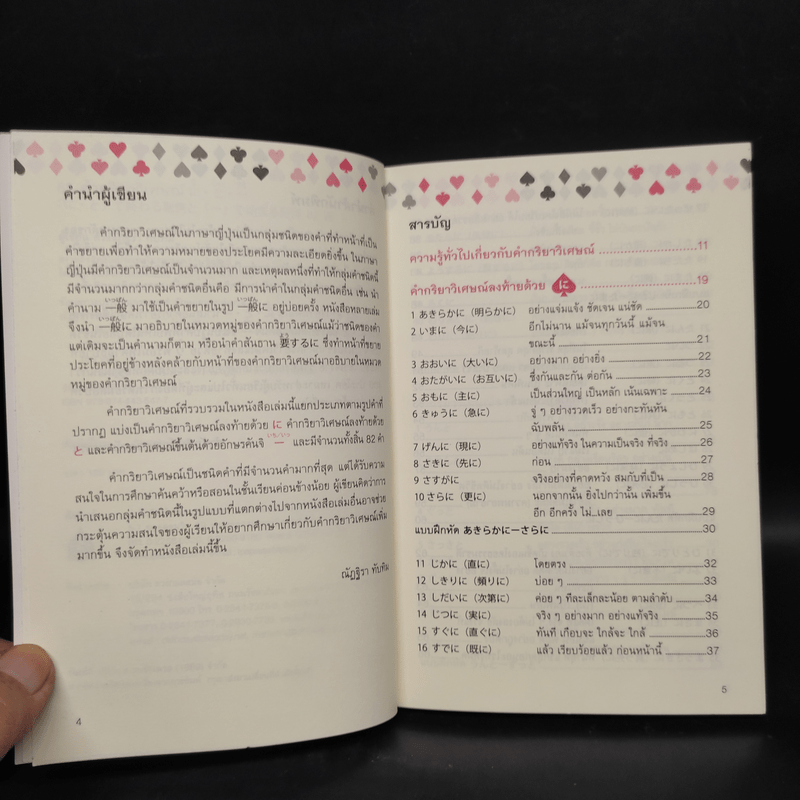 คำนำผู้เขียน
คำกริยาวิเศษณ์ในภาษาญี่ปุ่นเป็นกลุ่มชนิดของคำที่ทำหน้าที่เป็น
คำขยายเพื่อทำให้ความหมายของประโยคมีความละเอียดยิ่งขึ้น ในภาษา
ญี่ปุ่นมีคำกริยาวิเศษณ์เป็นจำนวนมาก และเหตุผลหนึ่งที่ทำให้กลุ่มคำชนิดนี้
มีจำนวนมากกว่ากลุ่มคำชนิดอื่นคือ มีการนำคำในกลุ่มคำชนิดอื่น เช่น นำ
คำนาม 一般 มาใช้เป็นคำขยายในรูป 一般に อยู่บ่อยครั้ง หนังสือหลายเล่ม
จึงนำ 一般に มาอธิบายในหมวดหมู่ของคำกริยาวิเศษณ์แม้ว่าชนิดของคำ
แต่เดิมจะเป็นคำนามก็ตาม หรือนำคำสันธาน 要するに ซึ่งทำหน้าที่ขยาย
ประโยคที่อยู่ข้างหลังคล้ายกับหน้าที่ของคำกริยาวิเศษณ์มาอธิบายในหมวด
หมู่ของคำกริยาวิเศษณ์
คำกริยาวิเศษณ์ที่รวบรวมในหนังสือเล่มนี้แยกประเภทตามรูปคำที่
ปรากฏ แบ่งเป็นคำกริยาวิเศษณ์ลงท้ายด้วย に คำกริยาวิเศษณ์ลงท้ายด้วย
と และคำกริยาวิเศษณ์ขึ้นต้นด้วยอักษรคันจิ 一 และมีจำนวนทั้งสิ้น 82 คำ
คำกริยาวิเศษณ์เป็นชนิดคำที่มีจำนวนคำมากที่สุด แต่ได้รับความ
สนใจในการศึกษาค้นคว้าหรือสอนในชั้นเรียนค่อนข้างน้อย ผู้เขียนคิดว่าการ
นำเสนอกลุ่มคำชนิดนี้ในรูปแบบที่แตกต่างไปจากหนังสือเล่มอื่นอาจช่วย
กระตุ้นความสนใจของผู้เรียนให้อยากศึกษาเกี่ยวกับคำกริยาวิเศษณ์เพิ่ม
มากขึ้น จึงจัดทำหนังสือเล่มนี้ขึ้น
ณัฏฐิรา ทับทิม
4
สารบัญ
ความรู้ทั่วไปเกี่ยวกับคำกริยาวิเศษณ์ ..... 11
คำกริยาวิเศษณ์ลงท้ายด้วย に ..... 19
1 あきらかに（明らかに） อย่างแจ่มแจ้ง ชัดเจน แน่ชัด ..... 20
2 いまに（今に） อีกไม่นาน แม้จนทุกวันนี้ แม้จน
ขณะนี้ ..... 21
3 おおいに（大いに） อย่างมาก อย่างยิ่ง ..... 22
4 おたがいに（お互いに） ซึ่งกันและกัน ต่อกัน ..... 23
5 おもに（主に） เป็นส่วนใหญ่ เป็นหลัก เน้นเฉพาะ ..... 24
6 きゅうに（急に） จู่ ๆ อย่างรวดเร็ว อย่างกะทันหัน
ฉับพลัน ..... 25
7 げんに（現に） อย่างแท้จริง ในความเป็นจริง ที่จริง ..... 26
8 さきに（先に） ก่อน ..... 27
9 さすがに จริงอย่างที่คาดหวัง สมกับที่เป็น ..... 28
10 さらに（更に） นอกจากนั้น ยิ่งไปกว่านั้น เพิ่มขึ้น
อีก อีกครั้ง ไม่...เลย ..... 29
แบบฝึกหัด あきらかに－さらに ..... 30
11 じかに（直に） โดยตรง ..... 32
12 しきりに（頻りに） บ่อย ๆ ..... 33
13 しだいに（次第に） ค่อย ๆ ทีละเล็กละน้อย ตามลำดับ ..... 34
14 じつに（実に） จริง ๆ อย่างมาก อย่างแท้จริง ..... 35
15 すぐに（直ぐに） ทันที เกือบจะ ใกล้จะ ใกล้ ..... 36
16 すでに（既に） แล้ว เรียบร้อยแล้ว ก่อนหน้านี้ ..... 37
5